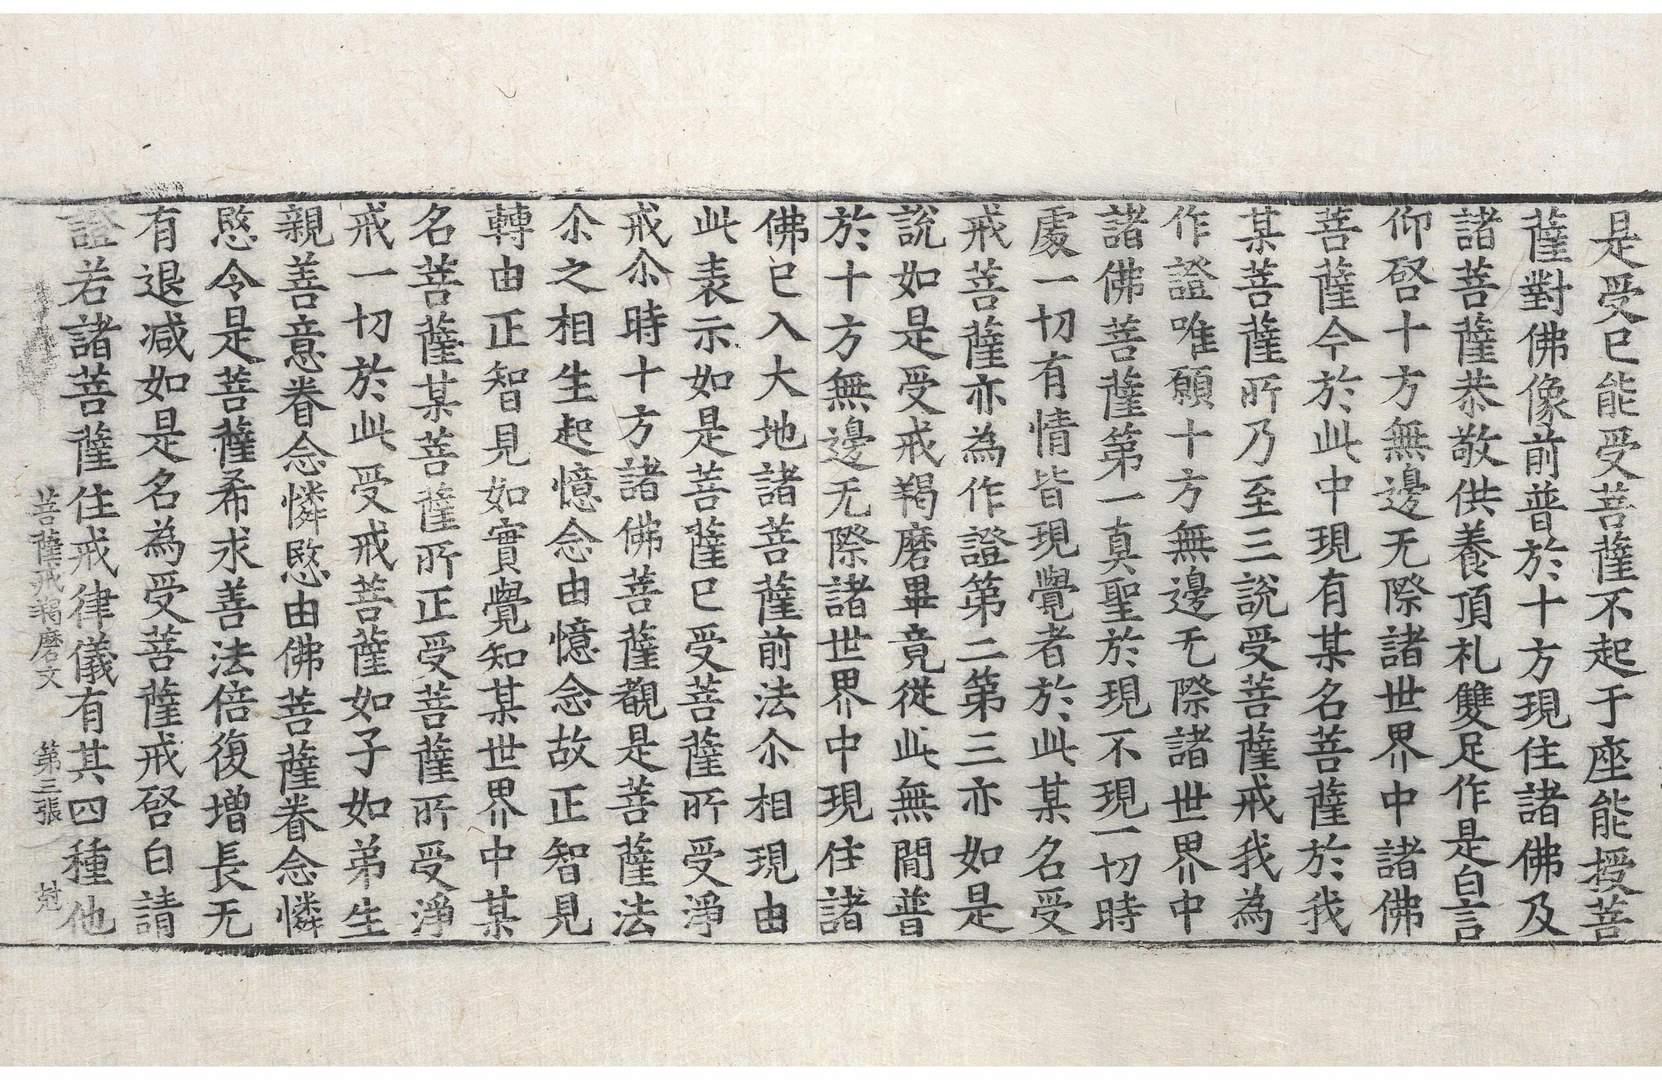 是受已能受菩薩不起于座能授菩
薩對佛像前普於十方現住諸佛及
諸菩薩恭敬供養頂礼雙足作是白言
仰启十方無邊无際諸世界中諸佛
菩薩今於此中現有某名菩薩於我
某菩薩所乃至三說受菩薩戒我為
作證唯願十方無邊无際諸世界中
諸佛菩薩第一真聖於現不現一切時
處一切有情皆現覺者於此某名受
戒菩薩亦為作證第二第三亦如是
說如是受戒羯磨畢竟從此無間普
於十方無邊无際諸世界中現住諸
佛已入大地諸菩薩前法尒相現由
此表示如是菩薩已受菩薩所受淨
戒尒時十方諸佛菩薩觀是菩薩法
尒之相生起憶念由憶念故正智見
轉由正智見如實覺知某世界中某
名菩薩某菩薩所正受菩薩所受淨
戒一切於此受戒菩薩如子如弟生
親善意眷念憐愍由佛菩薩眷念憐
愍令是菩薩希求善法倍復增長无
有退減如是名為受菩薩戒启白請
證若諸菩薩住戒律儀有其四種他
菩薩戒羯磨文 第三張